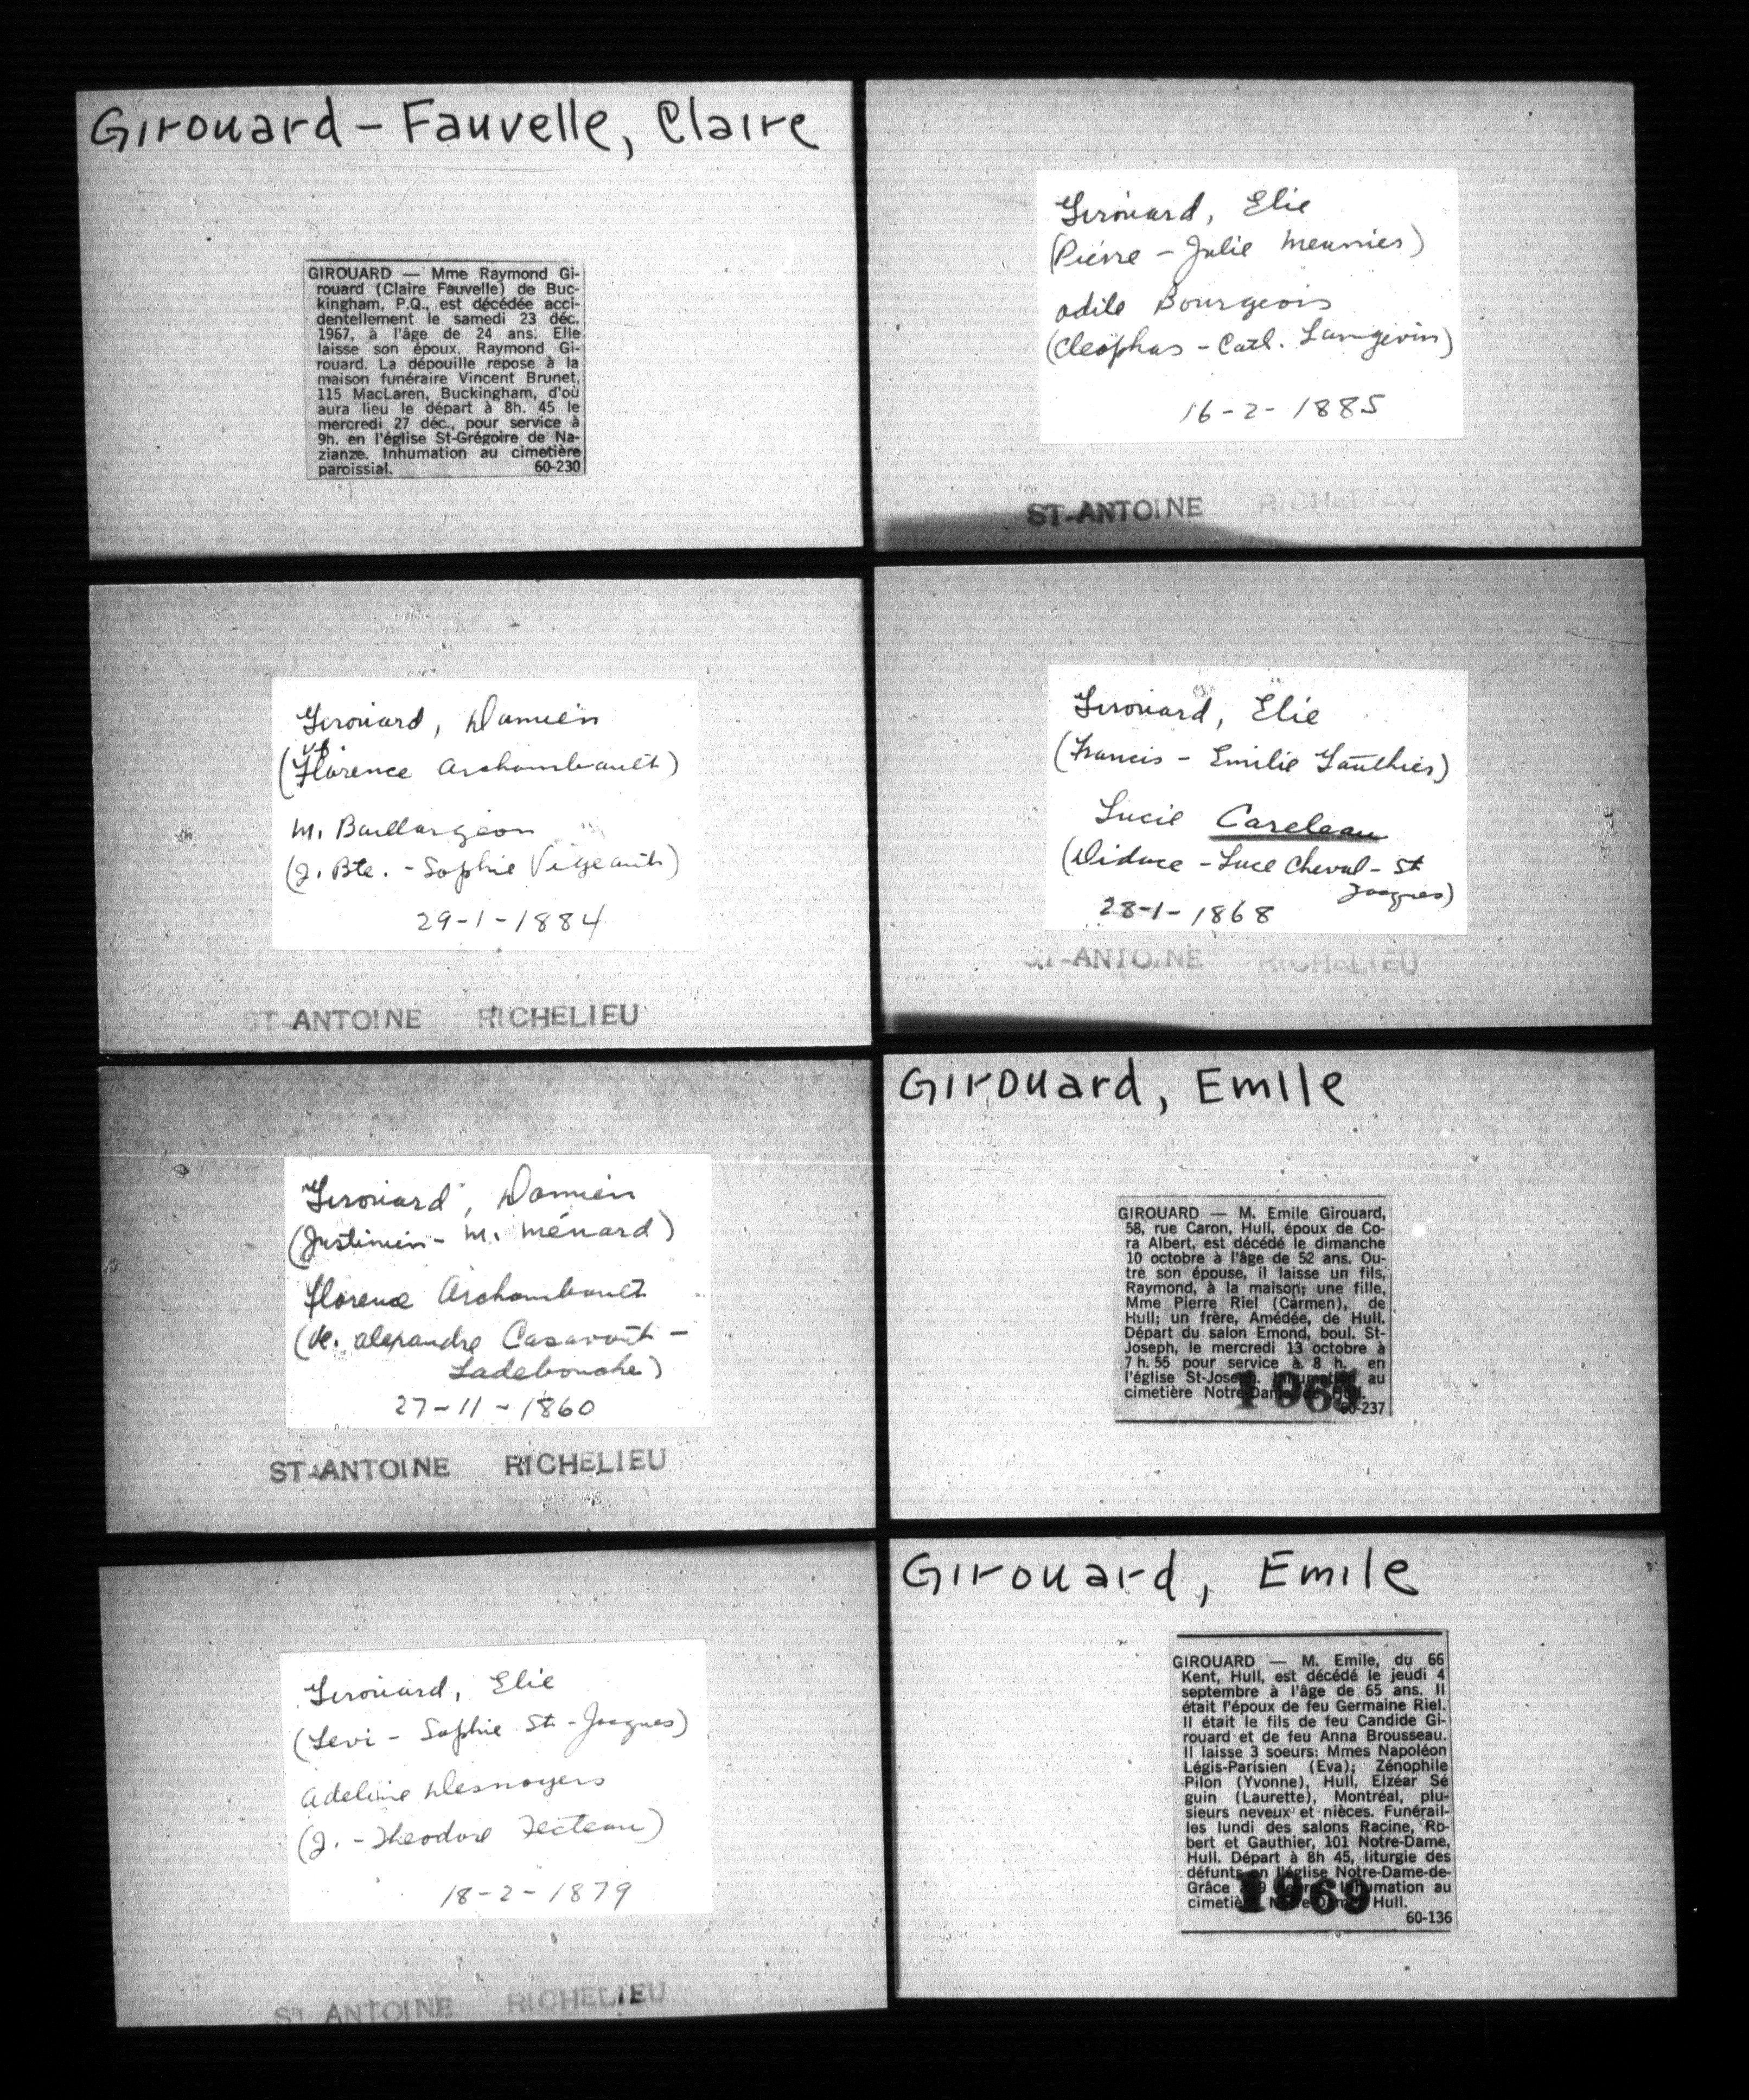 Girouard - Fauvelle, Claire
GIROUARD — Mme Raymond Gi-
rouard (Claire Fauvelle) de Buc-
kingham, P.Q., est décédée acci-
dentellement le samedi 23 déc.
1967, à l'âge de 24 ans. Elle
laisse son époux, Raymond Gi-
rouard. La dépouille repose à la
maison funéraire Vincent Brunet,
115 MacLaren, Buckingham, d'où
aura lieu le départ à 8h. 45 le
mercredi 27 déc., pour service à
9h. en l'église St-Grégoire de Na-
zianze. Inhumation au cimetière
paroissial. 60-230
Girouard, Damien
vf.
(Florence Archambault)
M. Baillargeon
(J. Bte. - Sophie Vigeant)
29-1-1884
ST-ANTOINE RICHELIEU
Girouard, Damien
(Justinien - M. Ménard)
Florence Archambault
(de. alexandre Casavant -
Ladebouche)
27-11-1860
ST-ANTOINE RICHELIEU
Girouard, Elie
(Levi - Sophie St-Jacques)
Adeline Desnoyers
(J. - Theodore Tecteau)
18-2-1879
ST ANTOINE RICHELIEU
Girouard, Elie
(Pierre - Julie Meunier)
Odile Bourgeois
(Cleophas - Cath. Langevin)
16-2-1885
ST-ANTOINE RICHELIEU
Girouard, Elie
(Francis - Emilie Gauthier)
Lucie Careleau
(Didace - Luce Cheval - St
Jacques)
28-1-1868
ST-ANTOINE RICHELIEU
Girouard, Emile
GIROUARD — M. Emile Girouard,
58, rue Caron, Hull, époux de Co-
ra Albert, est décédé le dimanche
10 octobre à l'âge de 52 ans. Ou-
tre son épouse, il laisse un fils,
Raymond, à la maison; une fille,
Mme Pierre Riel (Carmen), de
Hull; un frère, Amédée, de Hull.
Départ du salon Emond, boul. St-
Joseph, le mercredi 13 octobre à
7 h. 55 pour service à 8 h. en
l'église St-Joseph. Inhumation au
cimetière Notre-Dame de Hull.
60-237
Girouard, Emile
GIROUARD — M. Emile, du 66
Kent, Hull, est décédé le jeudi 4
septembre à l'âge de 65 ans. Il
était l'époux de feu Germaine Riel.
Il était le fils de feu Candide Gi-
rouard et de feu Anna Brousseau.
Il laisse 3 soeurs: Mmes Napoléon
Légis-Parisien (Eva); Zénophile
Pilon (Yvonne), Hull, Elzéar Sé
guin (Laurette), Montréal, plu-
sieurs neveux et nièces. Funérail-
les lundi des salons Racine, Ro-
bert et Gauthier, 101 Notre-Dame,
Hull. Départ à 8h 45, liturgie des
défunts en l'église Notre-Dame-de-
Grâce à 9 heures. Inhumation au
cimetière Notre-Dame, Hull.
1969
60-136